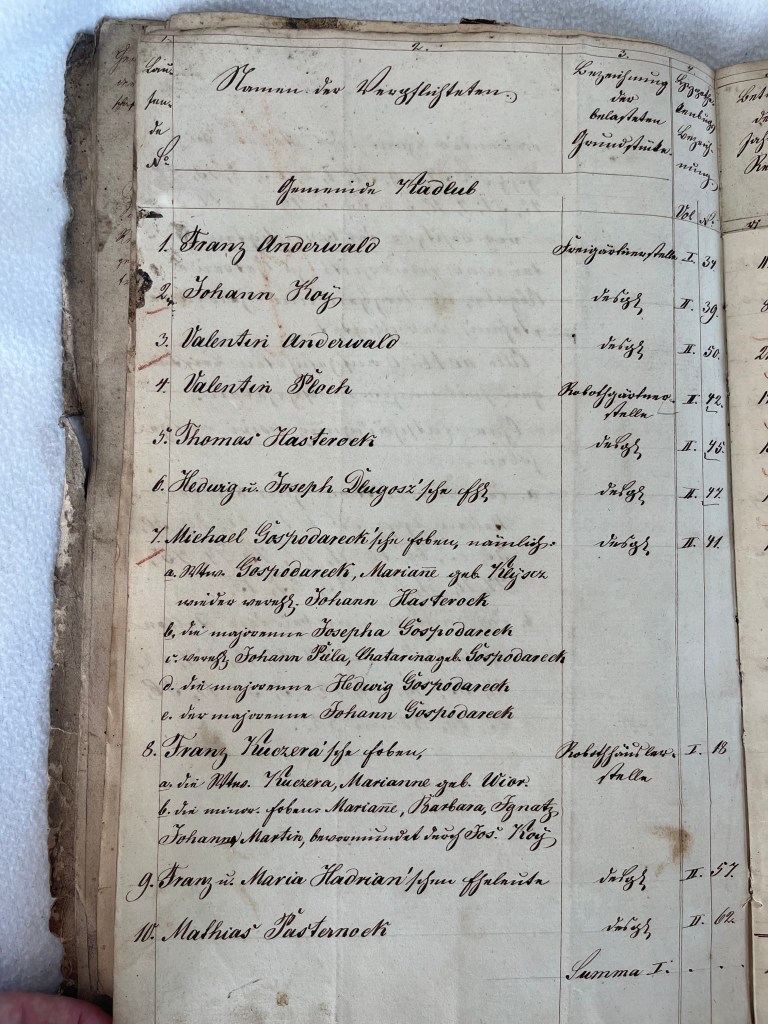 1. 2. 3. 4.
Lau-
fen-
de
No.
Namen der Verpflichteten.
Bezeichnung
der
belasteten
Grundstücke.
Hypothe-
kenbuchs
Bezeich-
nung.
Gemeinde Kadlub
Vol No.
1. Franz Anderwald Freigärtnerstelle I. 34
2. Johann Koÿ desgl. II. 39.
3. Valentin Anderwald desgl. II. 50.
4. Valentin Ploch Robothgärtner- II. 42.
stelle
5. Thomas Hasterock desgl. II. 45.
6. Hedwig u. Joseph Dlugosz'sche Ehl. desgl. II. 47.
7. Michael Gospodareck'sche Erben, nämlich: desgl. II. 41.
a. Wtw. Gospodareck, Marianne geb. Klÿscz
wieder verehl. Johann Hasterock
b. die majorenne Josepha Gospodareck
c. verehl. Johann Piela, Chatarina geb. Gospodareck
d. die majorenne Hedwig Gospodareck
e. der majorenne Johann Gospodareck
8. Franz Kuczera'sche Erben, Robothhäusler- I. 18
stelle
a. die Wtw. Kuczera, Marianne geb. Wior.
b. die minor. Erben Marianne, Barbara, Ignatz,
Johann, Martin, bevormundet durch Jos. Koÿ
9. Franz u. Maria Hadrian'schen Eheleute desgl. II. 57.
10. Mathias Pasternock desgl. II. 62.
Summa I. . . . .